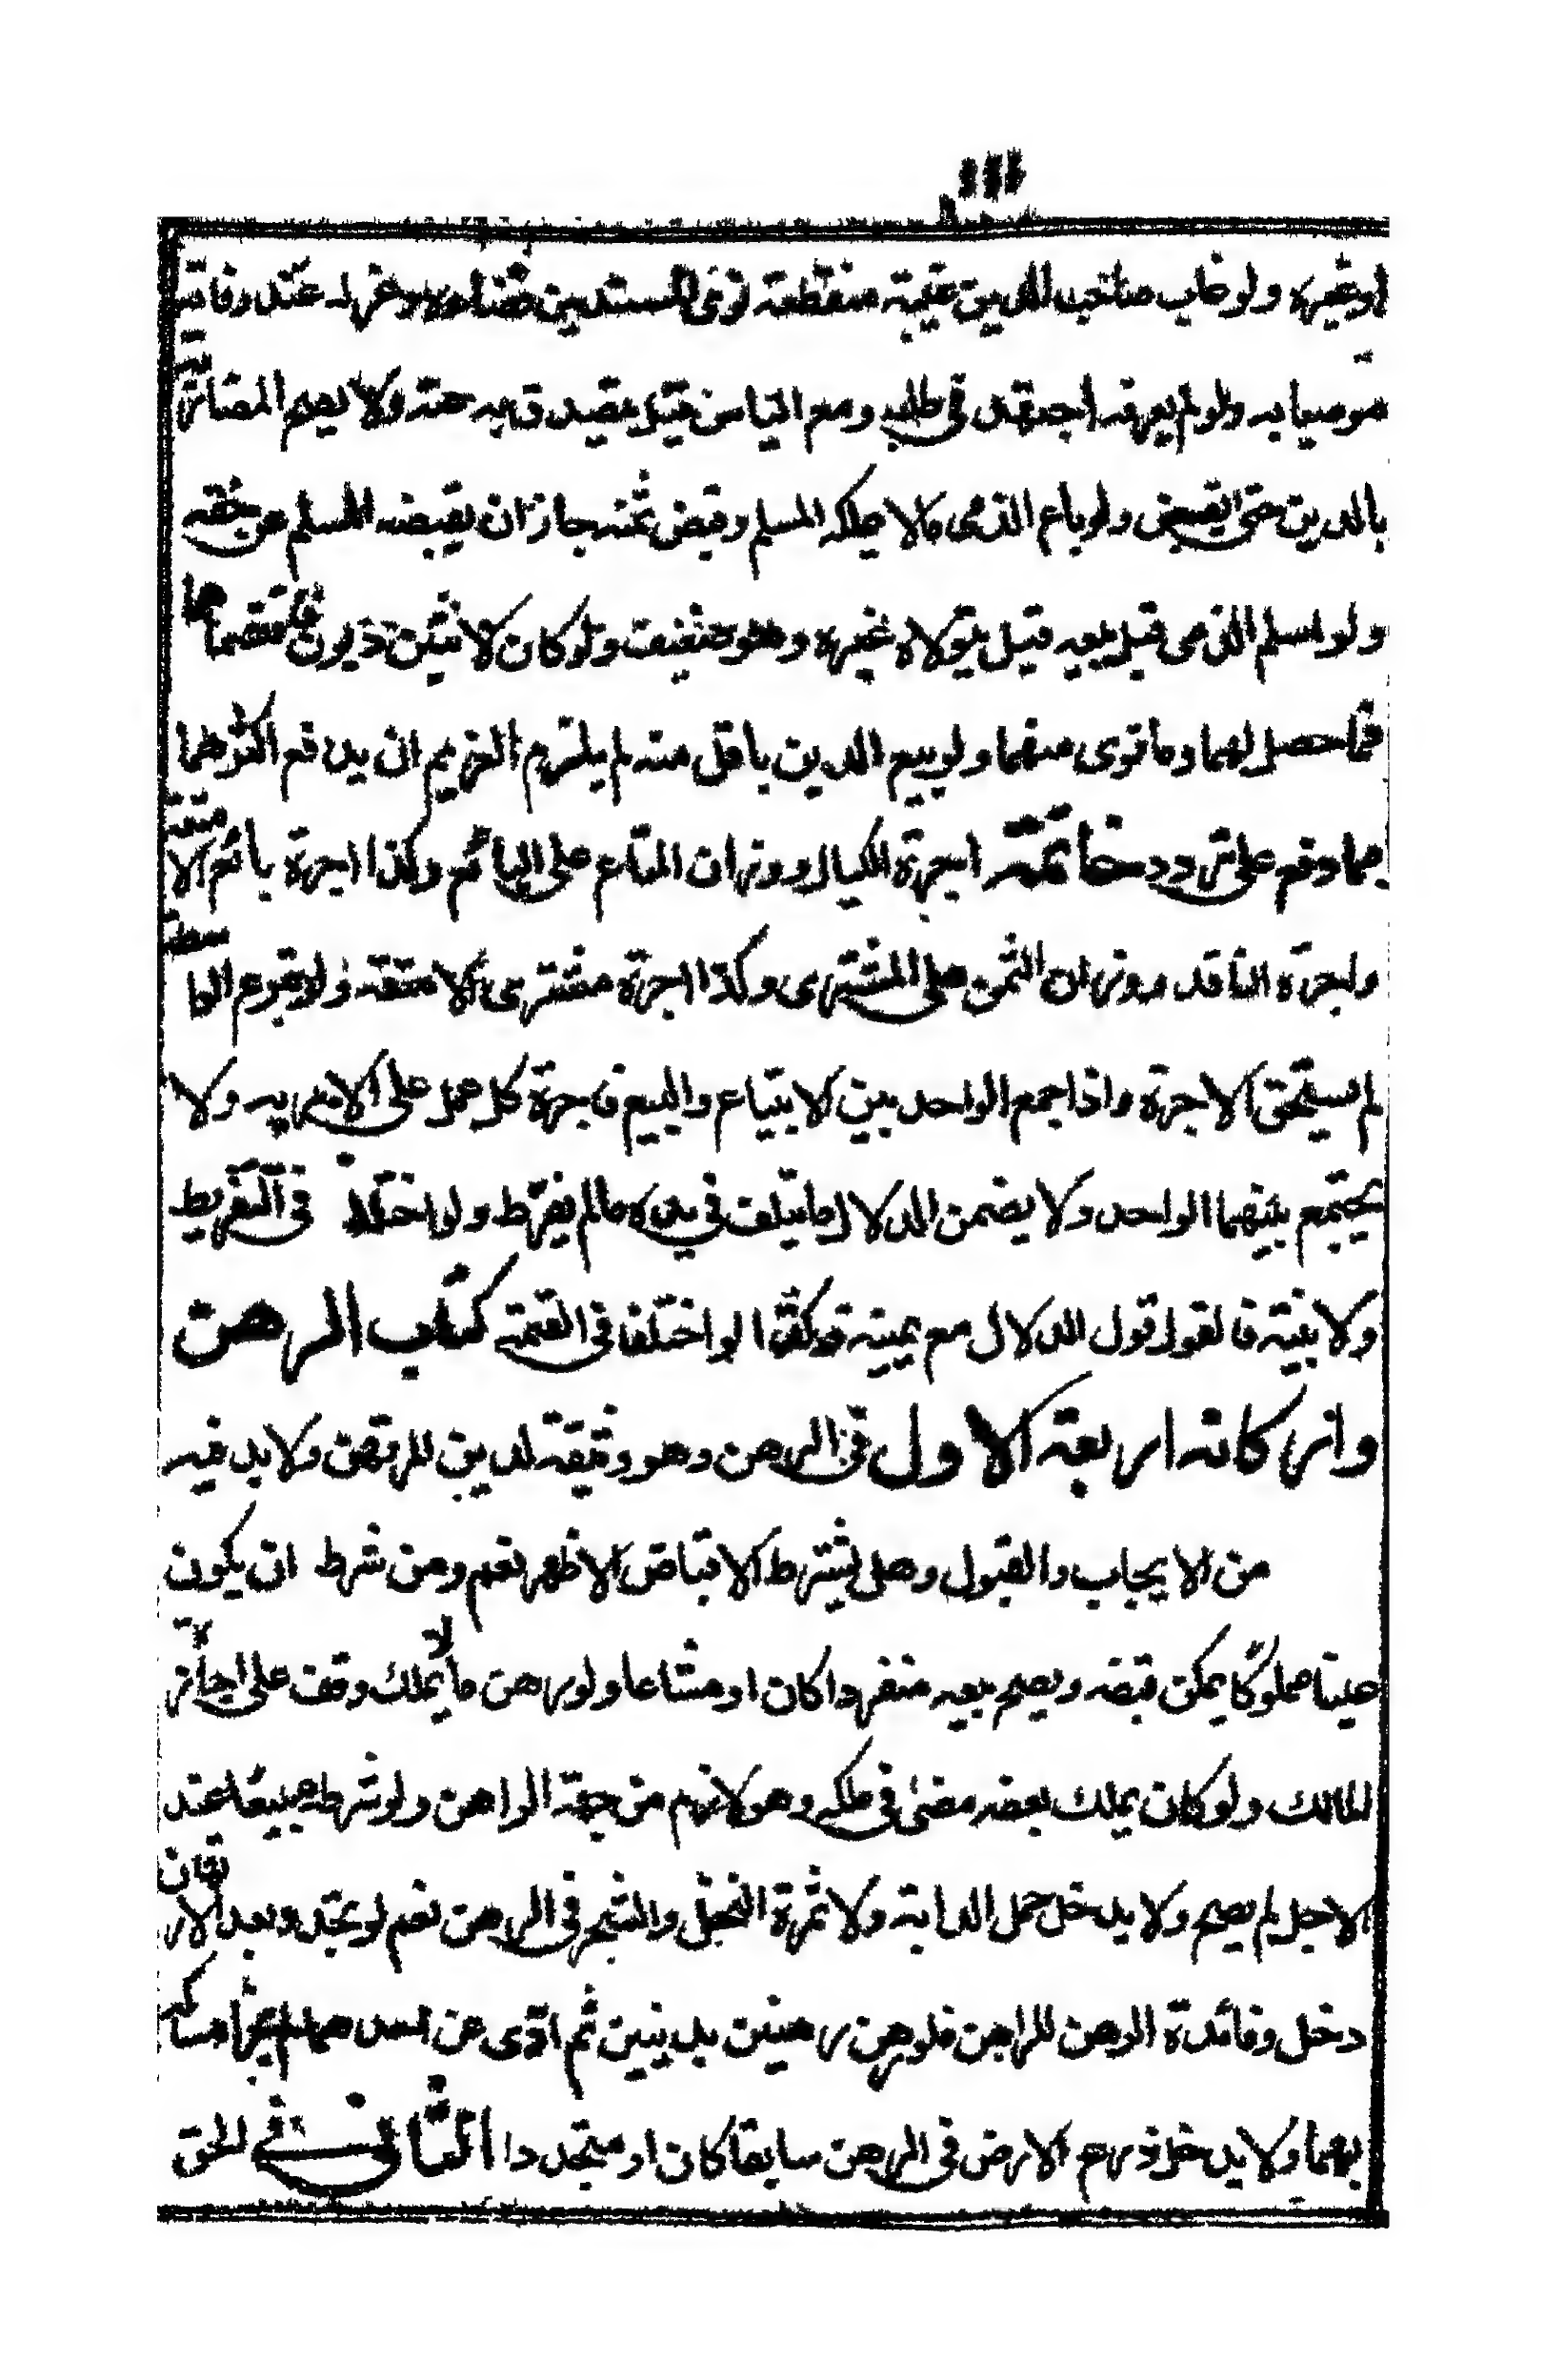 ١١١
او غيره ولو غاب صاحب الدين غيبة منقطعة نوى المستدين قضاءه وعزله عند وفاته
موصيا به ولو لم يعرفه اجتهد في طلبه ومع الياس قيل يتصدق به عنه ولا يصح المضاربة
بالدين حتى يقبض ولو باع الذمى مالا يملكه المسلم وقبض ثمنه جاز ان يقبضه المسلم عن حقه
ولو اسلم الذمى قبل بيعه قيل يتولاه غيره وهو ضعيف ولو كان لاثنين ديون فاقتسماها
فما حصل لهما وما توى منهما ولو بيع الدين باقل منه لم يلزم الغريم ان يدفع اكثر مما
دفع على تردد خاتمة اجرة الكيال ووزان المتاع على البائع وكذا اجرة بائع الامتعة
واجرة الناقد ووزان الثمن على المشترى وكذا اجرة مشترى الامتعة ولو تبرع الواسطة
لم يستحق الاجرة واذا جمع الواحد بين الابتياع والبيع فاجرة كل عمل على الامر به ولا
يجتمع بينهما الواحد ولا يضمن الدلال ما يتلف في يده ما لم يفرط ولو اختلفا في التفريط
ولا بينة فالقول قول الدلال مع يمينه وكذا لو اختلفا في القيمة كتاب الرهن
واركانه اربعة الاول في الرهن وهو وثيقة لدين المرتهن ولا بد فيه
من الايجاب والقبول وهل يشترط الاقباض الاظهر نعم ومن شرط ان يكون
عينا مملوكا يمكن قبضه ويصح بيعه منفردا كان او مشاعا ولو رهن ما لا يملك وقف على اجازة
المالك ولو كان يملك بعضه مضى في ملكه وهو لازم من جهة الراهن ولو شرطه مبيعا عند
الاجل لم يصح ولا يدخل حمل الدابة ولا ثمرة النخل والشجر في الرهن نعم لو تجدد بعد الارتهان
دخل وفائدة الرهن للراهن فلو رهن رهنين بدينين ثم ادى عن احدهما لم يجز امساكه
بهما ولا يدخل زرع الارض في الرهن سابقا كان او متجددا الثانى في الحق